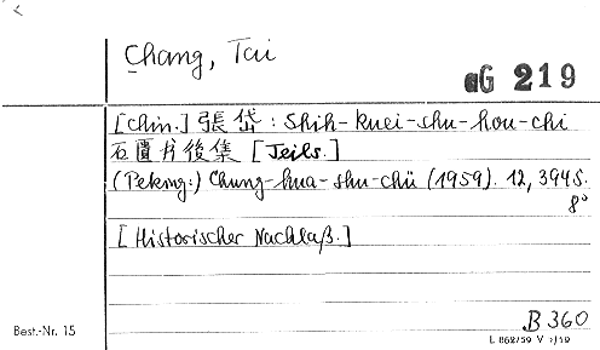 Chang, Tai
aG 219
[Chin.] 張岱 : Shih-kuei-shu-hou-chi
石匱书後集 [Teils.]
(Peking:) Chung-hua-shu-chü (1959). 12, 394 S.
8°
[Historischer Nachlaß.]
B 360
Best.-Nr. 15
L 868/59 V